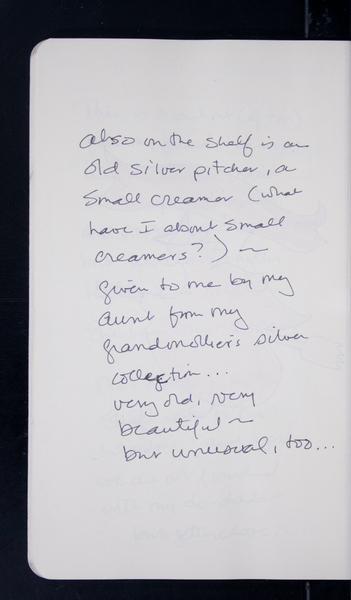 also on the shelf is an
old silver pitcher, a
small creamer (what
have I about small
creamers?) ~
given to me by my
aunt from my
grandmother's silver
collection...
very old, very
beautiful ~
but unusual, too...